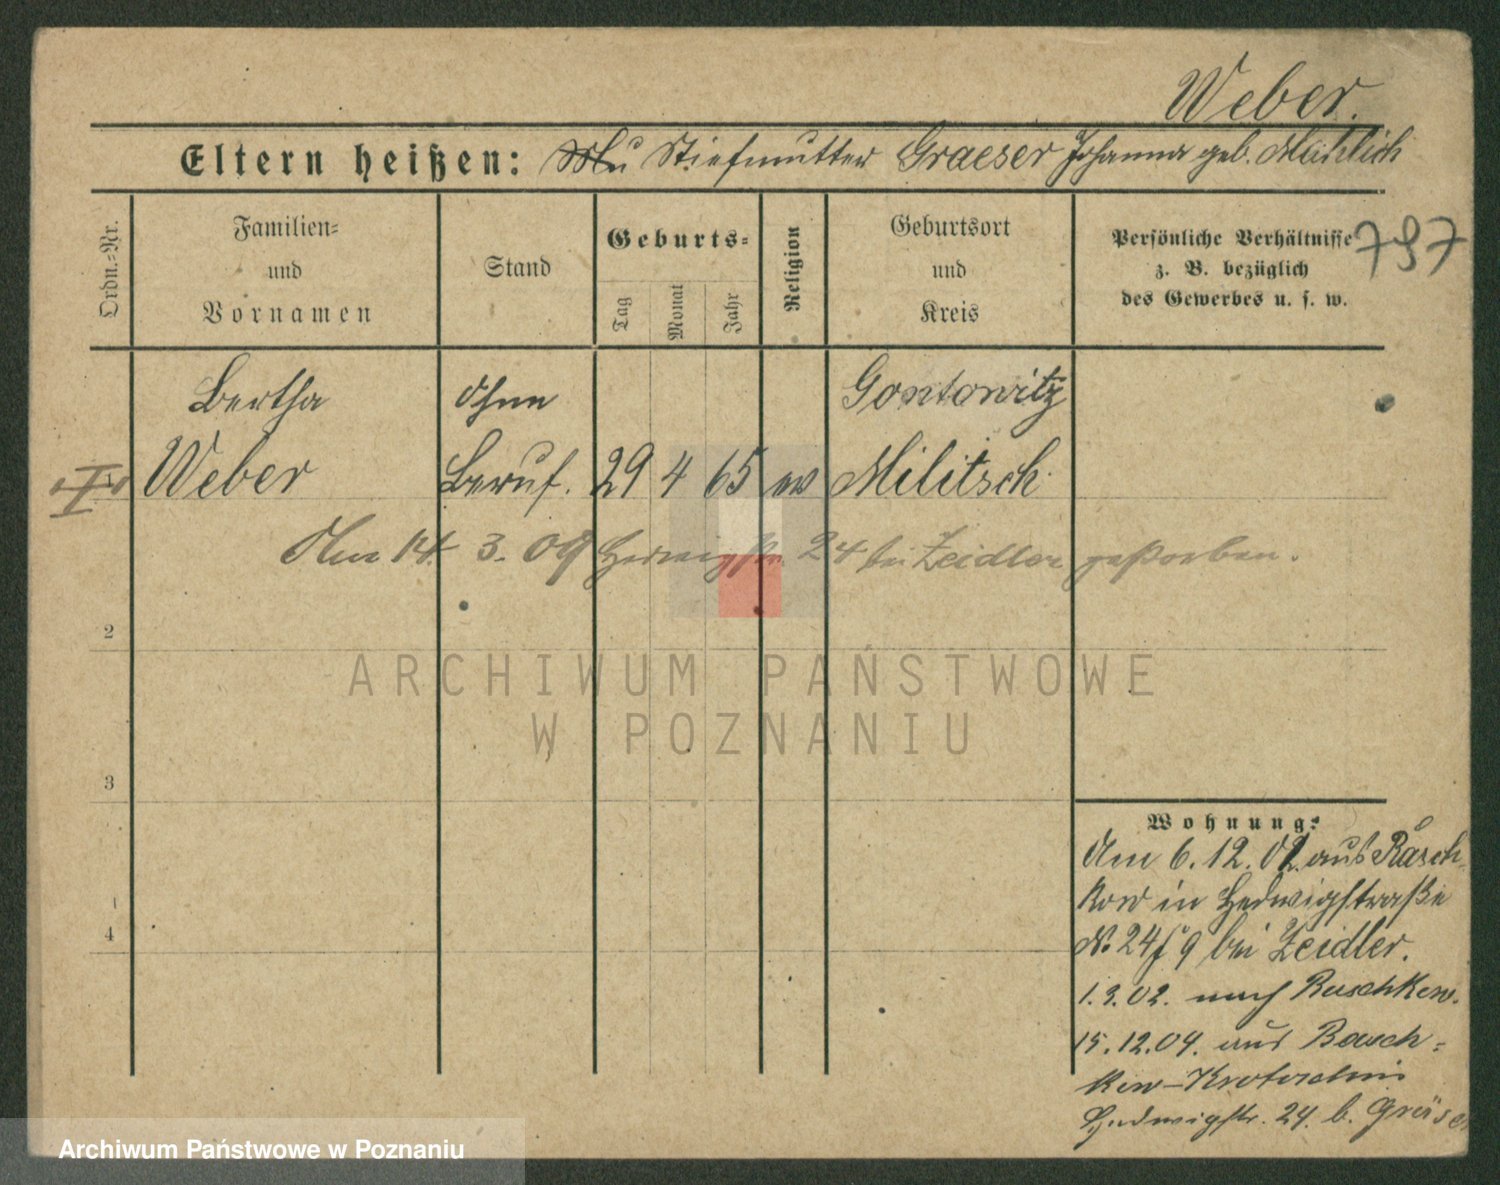 Weber.
Eltern heißen: Stiefmutter Graeser Johanna geb.
Ordn.-Nr.
Familien-
und
Vornamen
Stand
Geburts-
Tag
Monat
Jahr
Religion
Geburtsort
und
Kreis
Persönliche Verhältnisse
z. B. bezüglich
des Gewerbes u. s. w.
797
Bertha ohne Gontowitz
I Weber Beruf. 29 4 65 ev Militsch
Am 14. 3. 09 Hedwigstr. 24 bei Zeidler gestorben.
2
ARCHIWUM PAŃSTWOWE
W POZNANIU
3
4
Wohnung:
Am 6. 12. 01. aus Rasch-
kow in Hedwigstraße
No 24 bei Zeidler.
1.3.02. nach Raschkow.
15.12.04. aus Rasch-
kow-Krotoschin
Hedwigstr. 24. b. Gräser
Archiwum Państwowe w Poznaniu